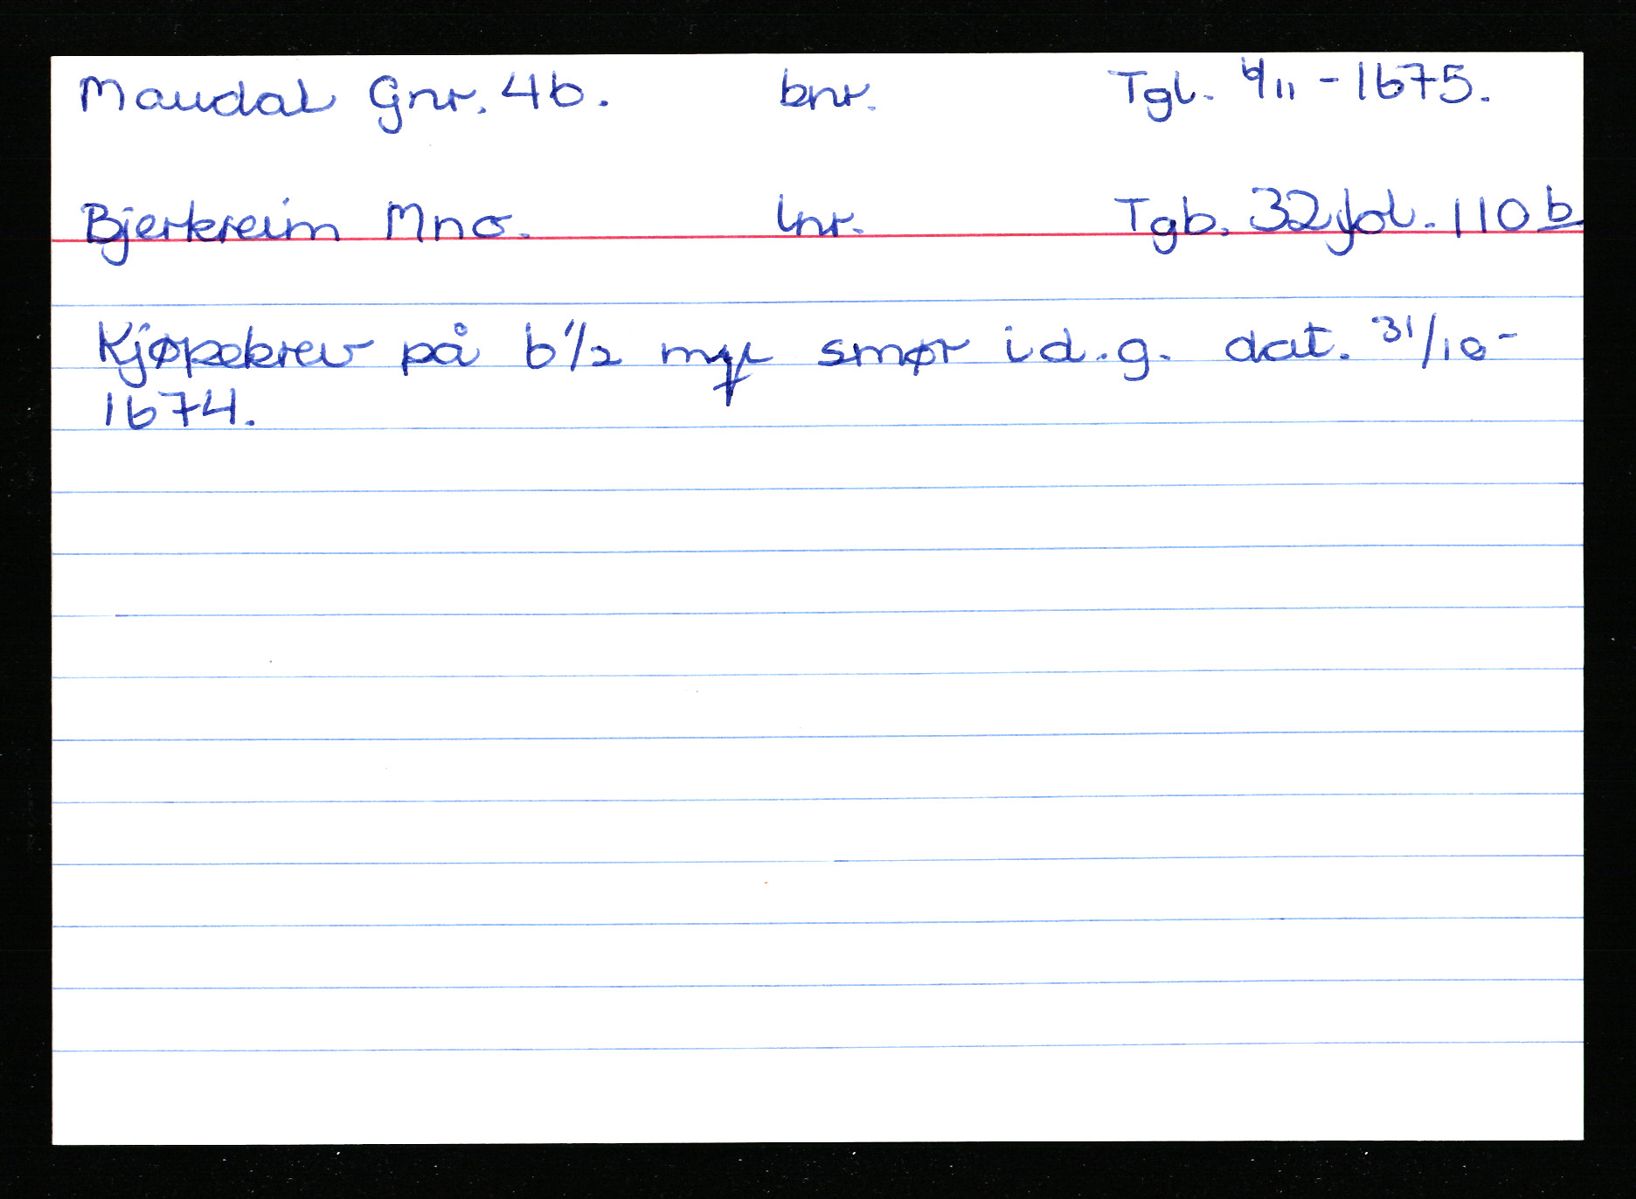 Maudal Gnr. 46. bnr. Tgl. 4/11 - 1675.
Bjerkreim Mno. lnr. Tgb. 32 fol. 110 b
Kjøpebrev på 6 1/2 smør i d.g. dat. 31/10 -
1674.